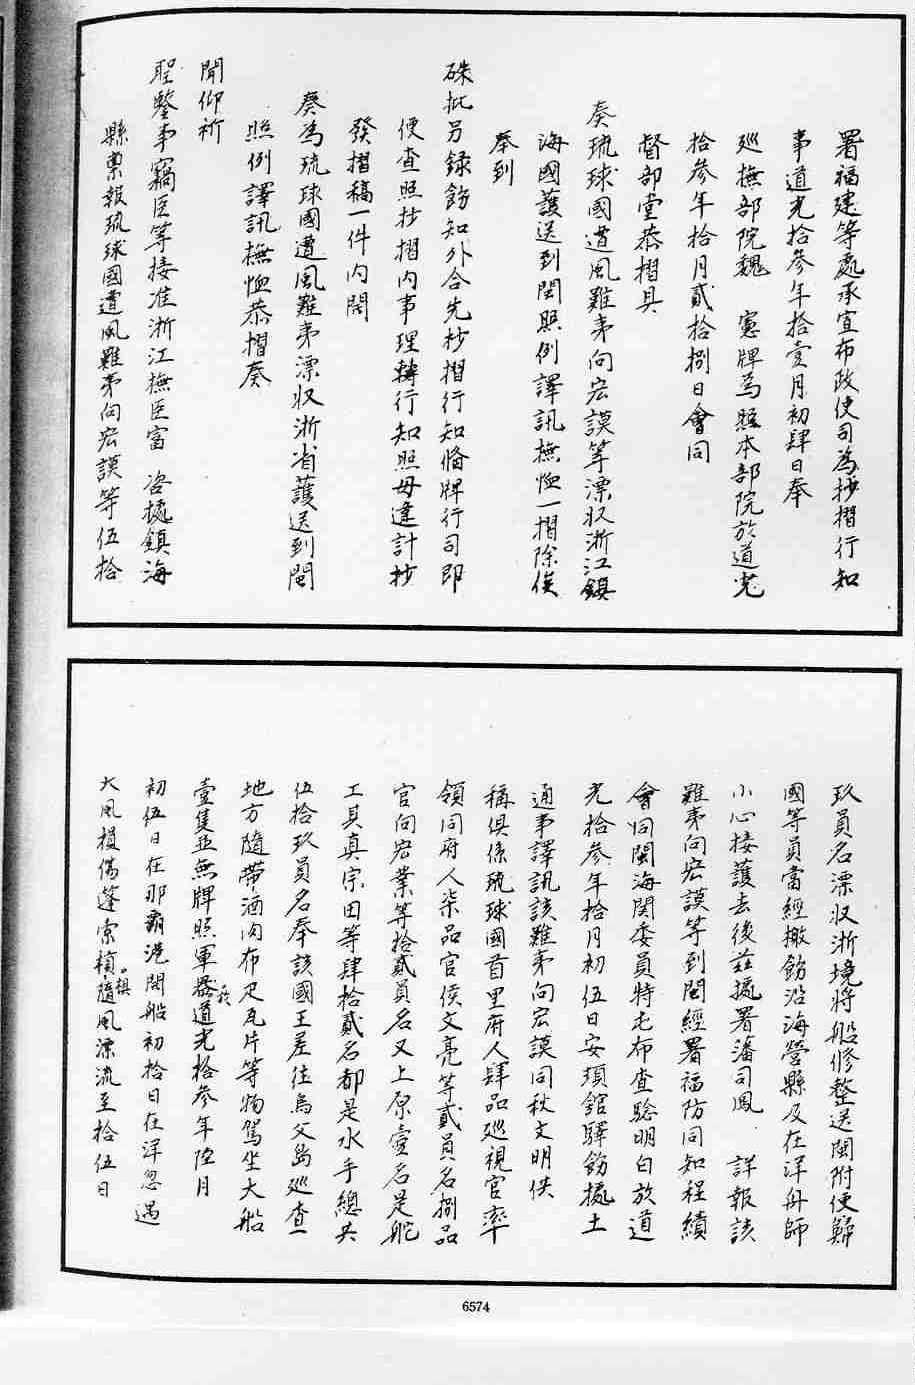 署福建等處承宣布政使司為抄摺行知
事道光拾參年拾壹月初肆日奉
巡撫部院魏　憲牌為照本部院於道光
拾參年拾月貳拾捌日會同
督部堂恭摺具
奏琉球國遭風難夷向宏謨等漂收浙江鎮
海國護送到閩照例譯訊撫恤一摺除俟
奉到
硃批另錄飭知外合先抄摺行知備牌行司即
便查照抄摺內事理轉行知照毋違計抄
發摺稿一件內開
奏為琉球國遭風難夷漂收浙省護送到閩
照例譯訊撫恤恭摺奏
聞仰祈
聖鑒事竊臣等接准浙江撫臣富　咨據鎮海
縣稟報琉球國遭風難夷向宏謨等伍拾
玖員名漂收浙境將船修整送閩附便歸
國等員當經撤飭沿海營縣及在洋舟師
小心接護去後茲據署藩司鳳　詳報該
難夷向宏謨等到閩經署福防同知程績
會同閩海關委員特屯布查驗明白於道
光拾參年拾月初伍日安頓館驛飭據土
通事譯訊該難夷向宏謨同秋文明供
稱俱係琉球國首里府人肆品巡視官率
領同府人柒品官侯文亮等貳員名捌品
官向宏業等拾貳員名又上原壹名是舵
工具真宗田等肆拾貳名都是水手總共
伍拾玖員名奉該國王差往烏父島巡查
地方隨帶酒肉布疋瓦片等物駕坐大船
壹隻並無牌照軍器道光拾參年陸月
初伍日在那霸港開船初拾日在洋忽遇
大風損傷篷索槓椇隨風漂流至拾伍日
6574